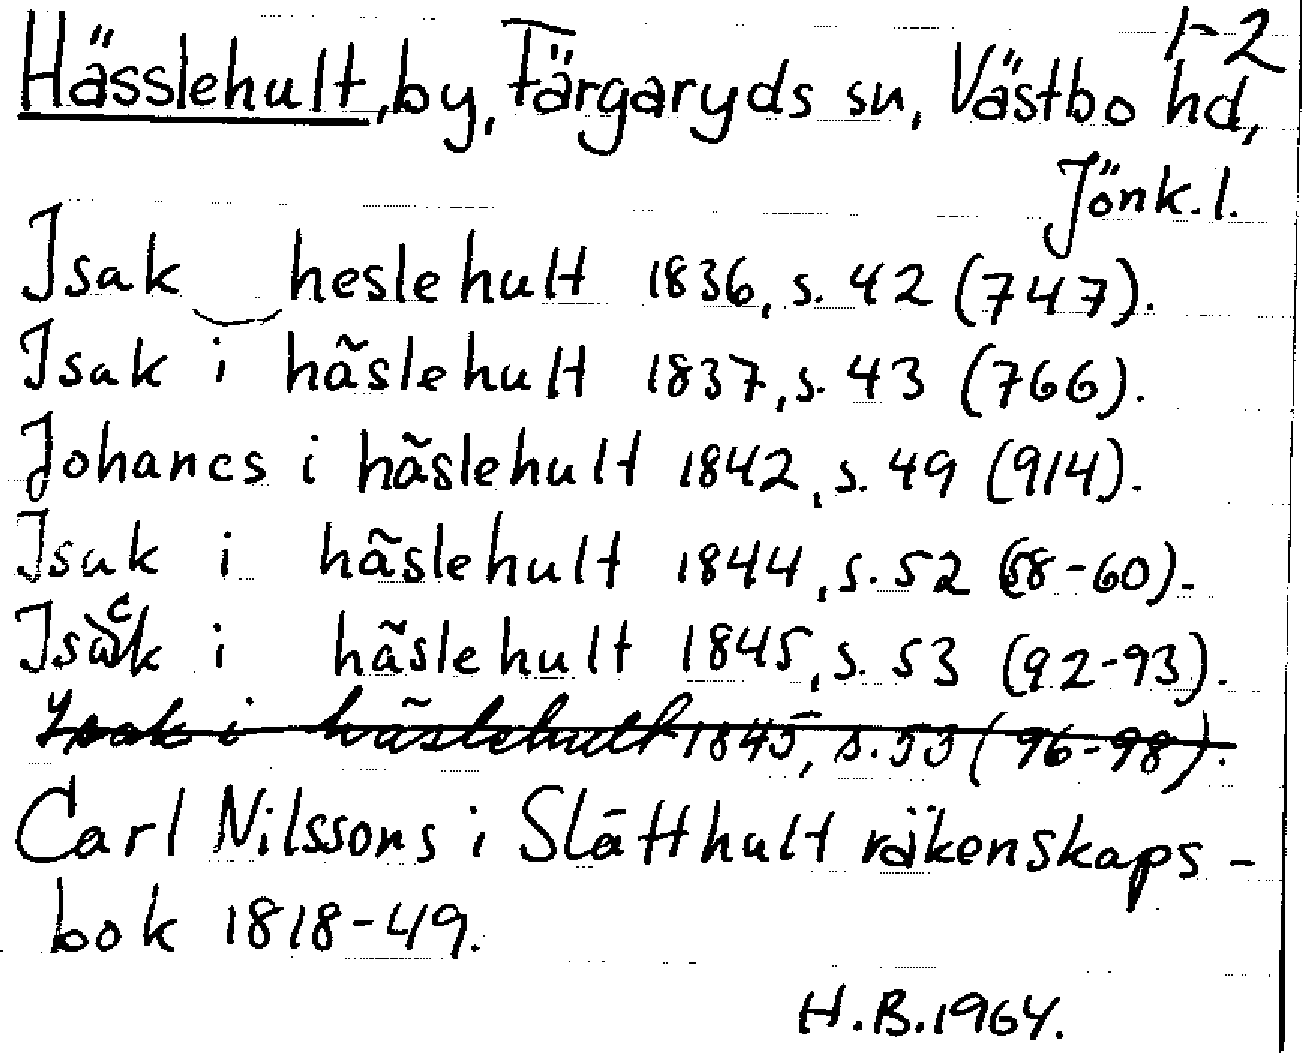 1-2
Hässlehult, by, Färgaryds sn, Västbo hd,
Jönk. l.
Isak heslehult 1836, s. 42 (747).
Isak i hãslehult 1837, s. 43 (766).
Johanes i hãslehult 1842, s. 49 (914).
Isak i hãslehult 1844, s. 52 (58-60).
Isack i hãslehult 1845, s. 53 (92-93).
Isak i hãslehult 1845, s. 53 (96-98).
Carl Nilssons i Slätthult räkenskaps-
bok 1818-49.
H.B. 1964.